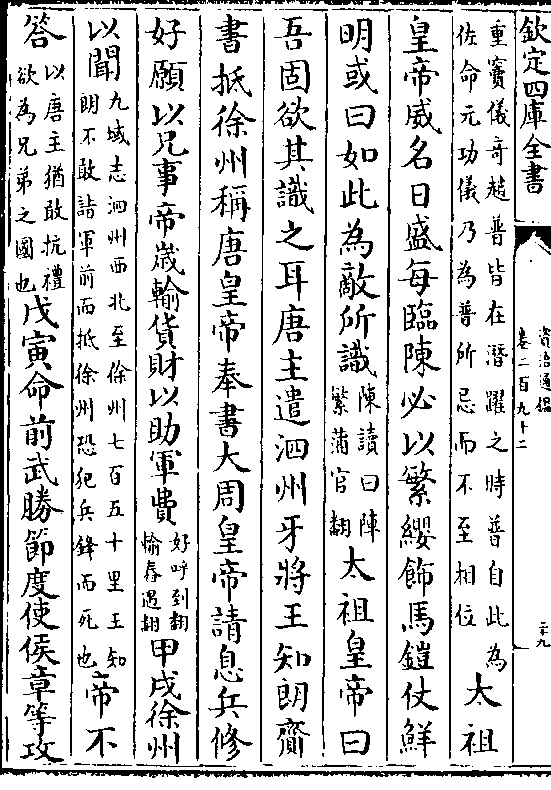 欽定四庫全書
資治通鑑
卷二百九十二
二十九
重竇儀奇趙普皆在潛躍之時普自此為
佐命元功儀乃為普所忌而不至相位
太祖
皇帝威名日盛每臨陳必以繁纓飾馬鎧仗鮮
明或曰如此為敵所識
陳讀曰陣
繁蒲官翻
太祖皇帝曰
吾固欲其識之耳唐主遣泗州牙將王知朗齎
書抵徐州稱唐皇帝奉書大周皇帝請息兵修
好願以兄事帝歲輸貨財以助軍費
好呼到翻
輸舂遇翻
甲戌徐州
以聞
九域志泗州西北至徐州七百五十里王知
朗不敢詣軍前而抵徐州恐犯兵鋒而死也
帝不
答
以唐主猶敢抗禮
欲為兄弟之國也
戊寅命前武勝節度使侯章等攻